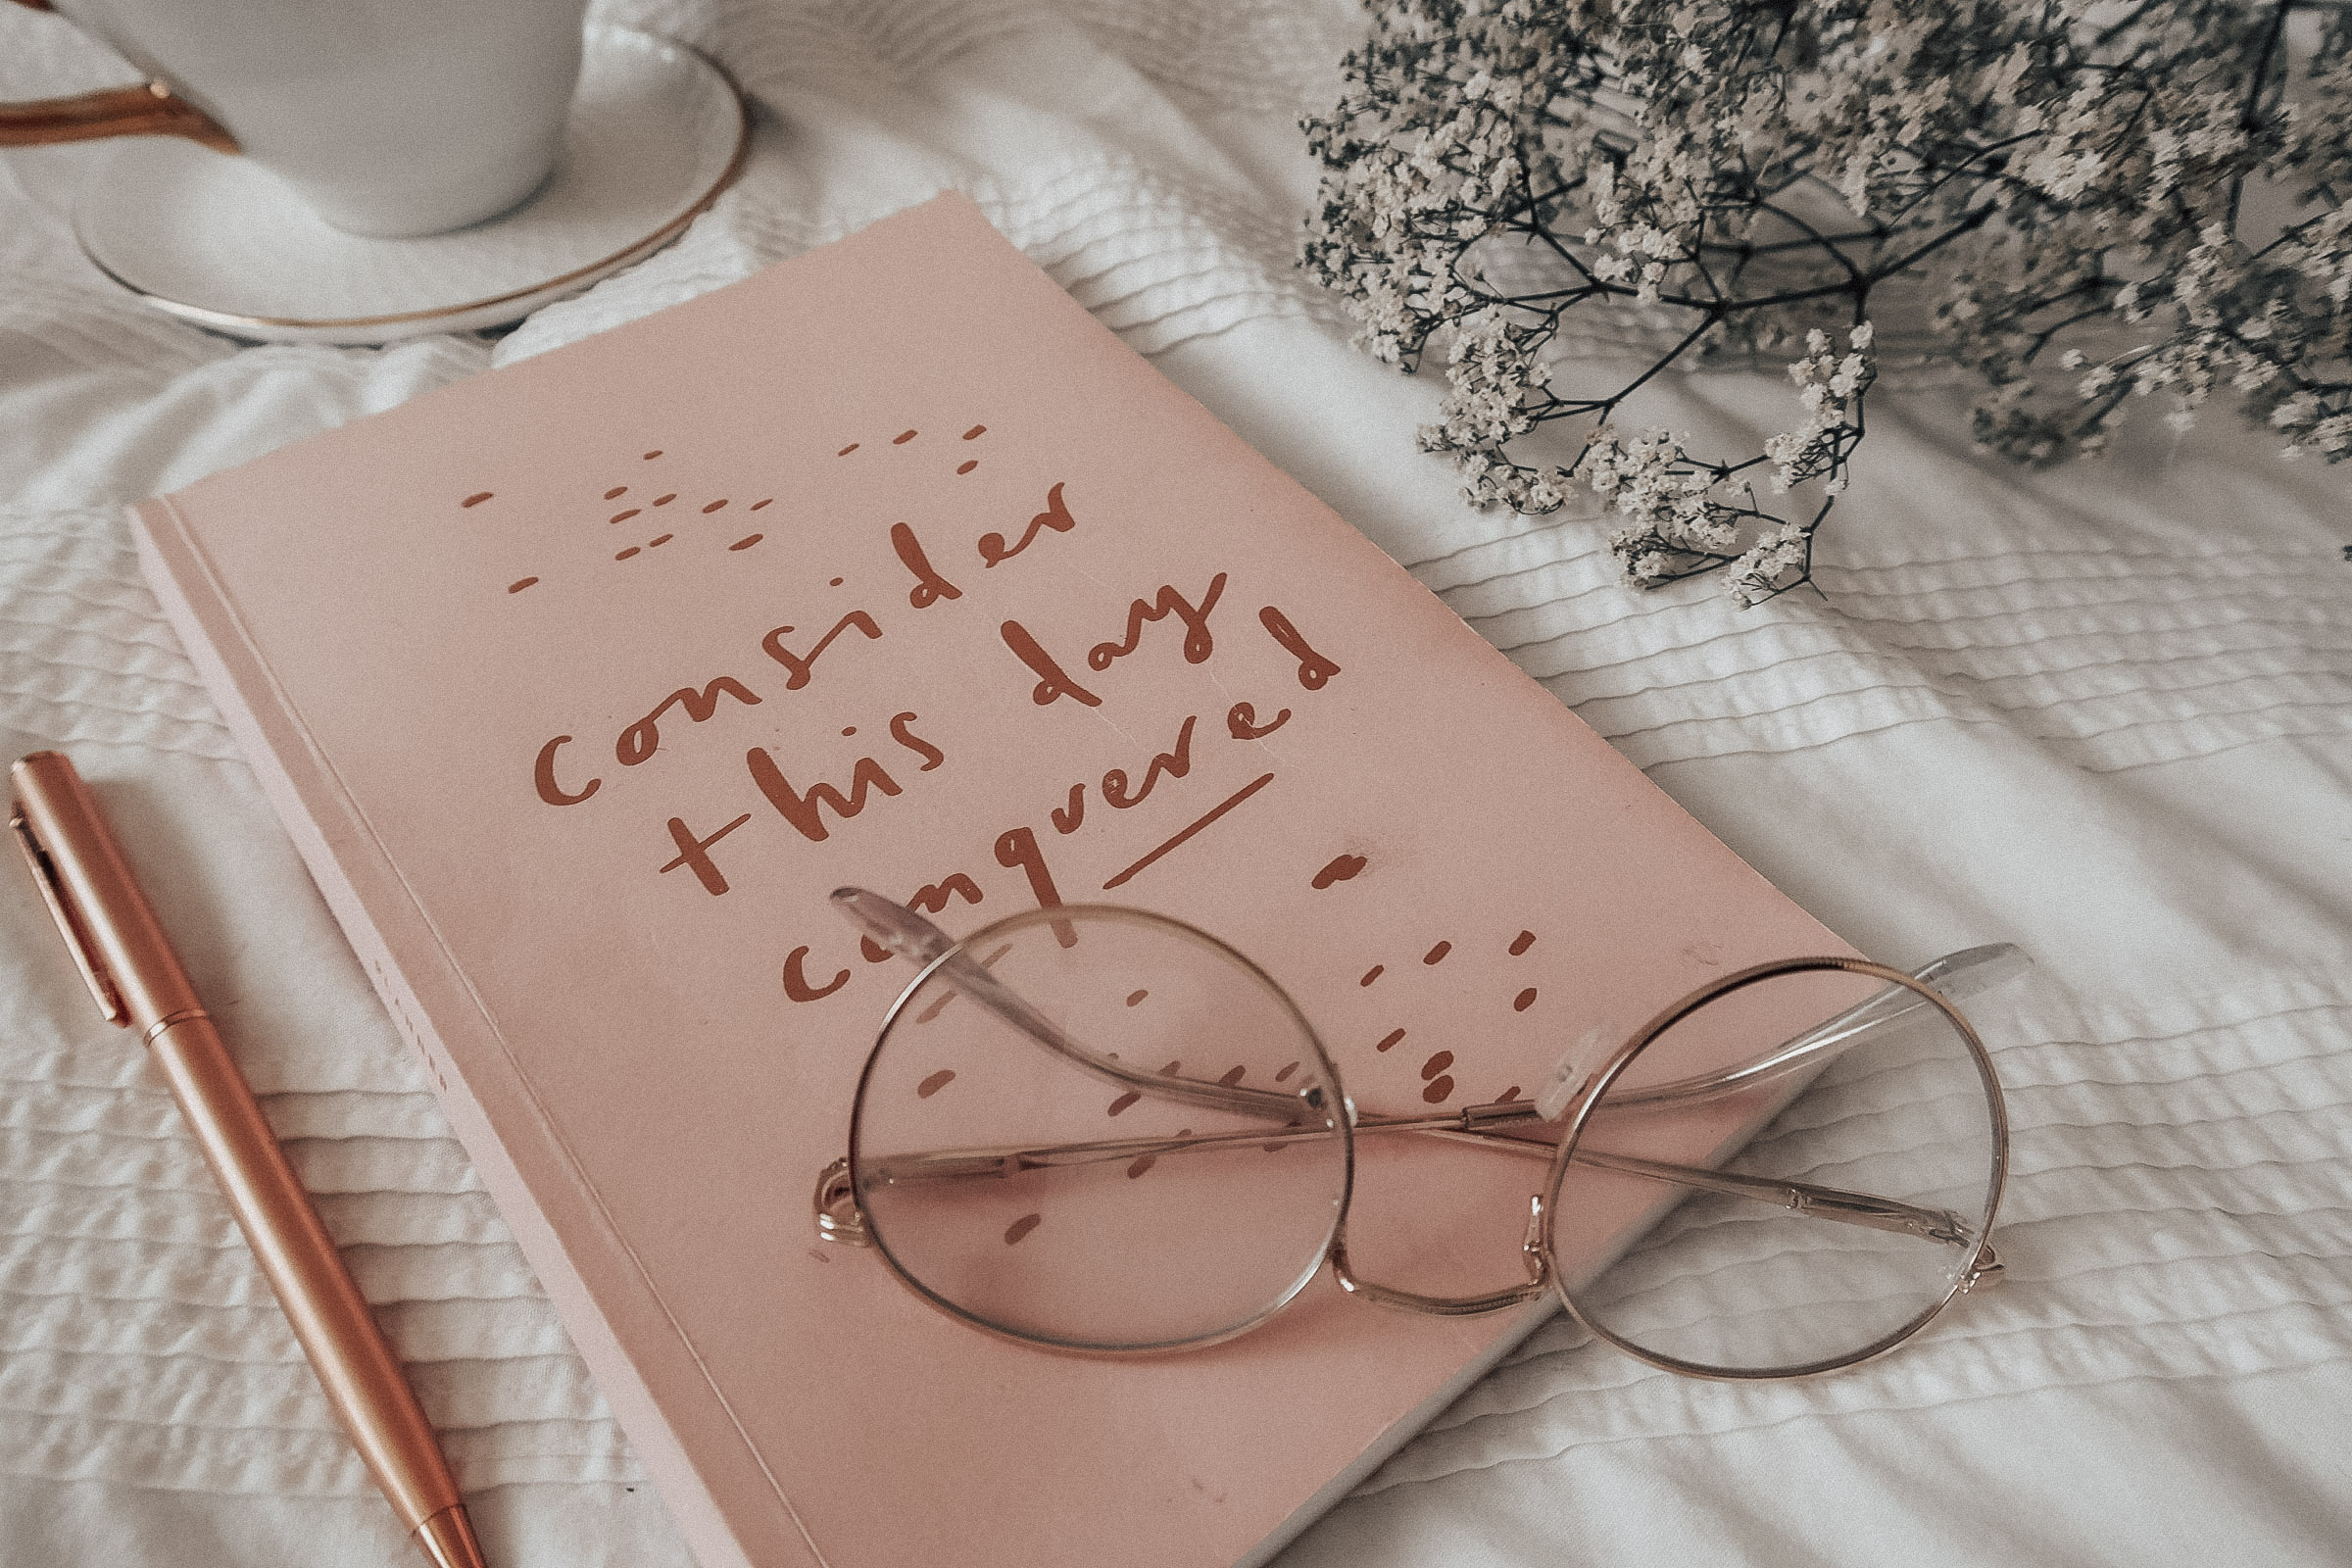 consider
this day
conquered